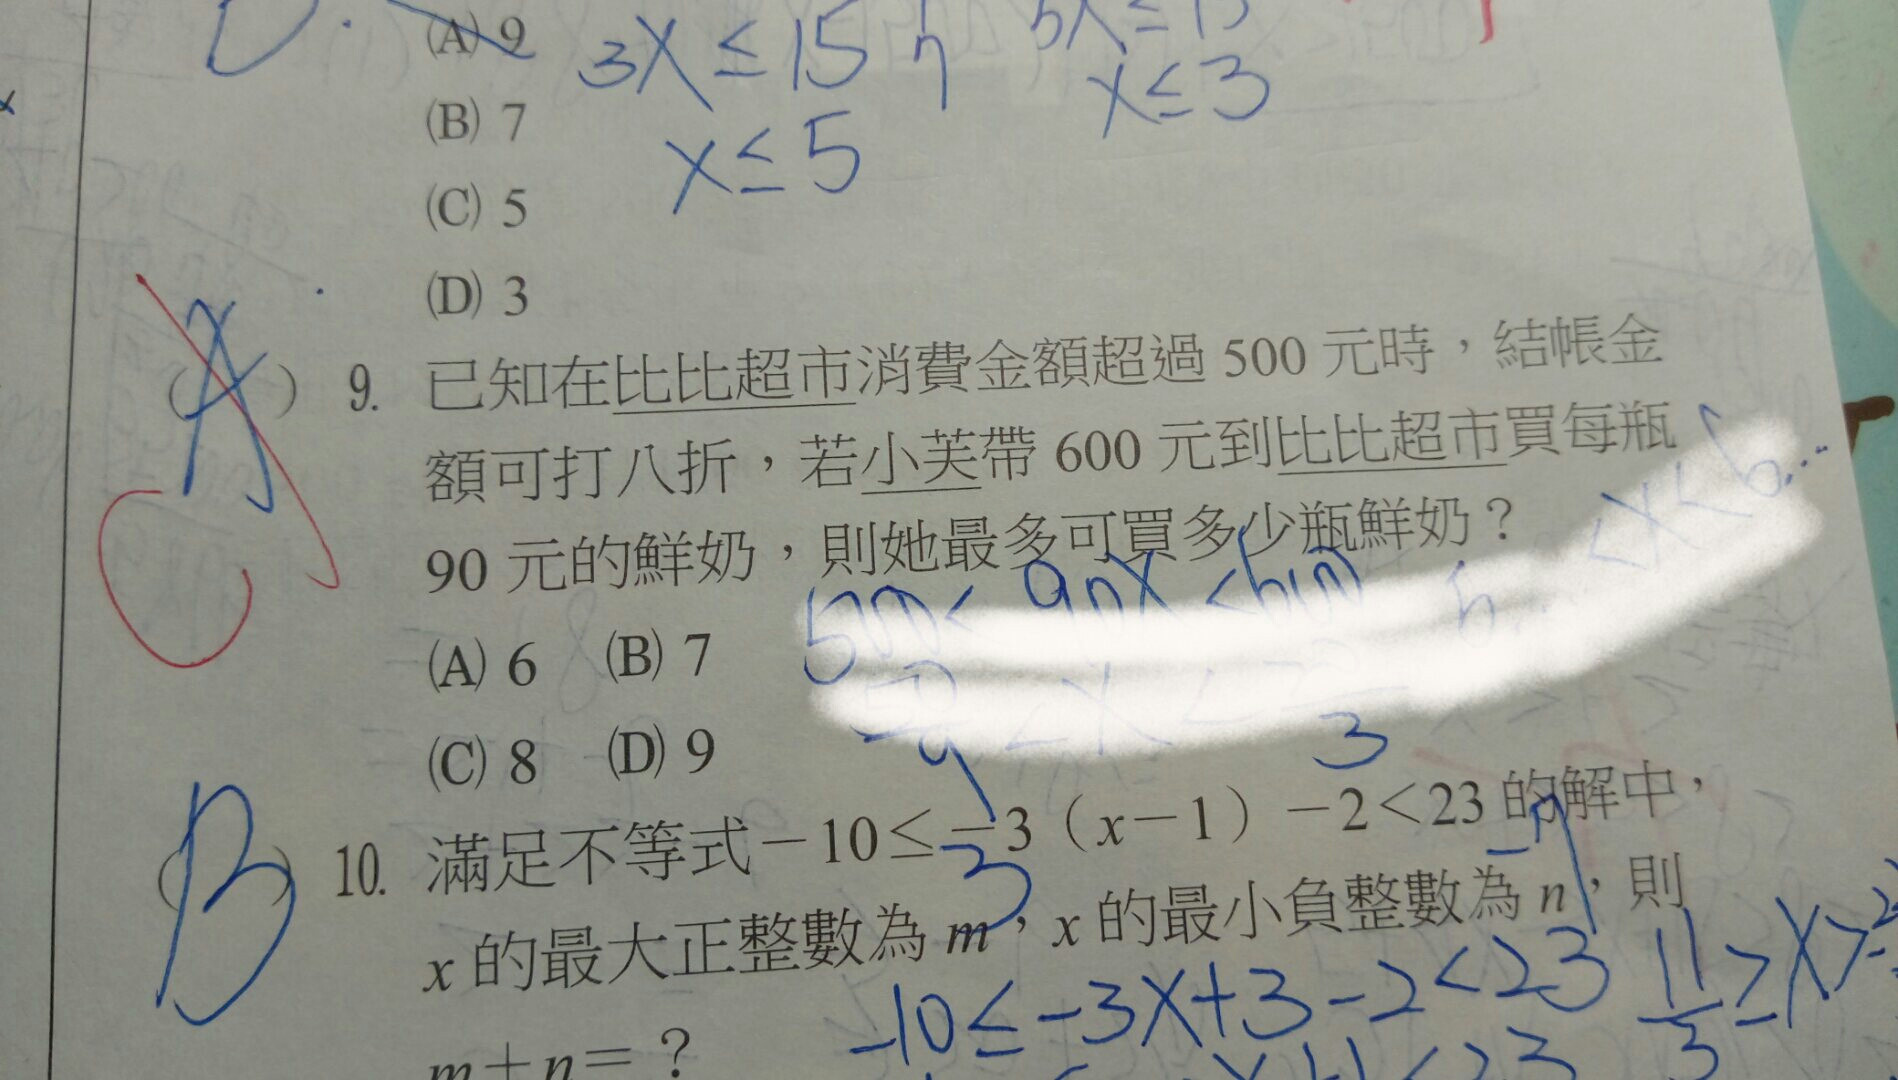 (A) 9
3x ≤ 15
x ≤ 3
(B) 7
x ≤ 5
(C) 5
(D) 3
A
C
( ) 9. 已知在比比超市消費金額超過 500 元時，結帳金
額可打八折，若小芙帶 600 元到比比超市買每瓶
90 元的鮮奶，則她最多可買多少瓶鮮奶？
(A) 6 (B) 7
(C) 8 (D) 9
3
B
( ) 10. 滿足不等式－10≤－3（x－1）－2＜23 的解中，
x 的最大正整數為 m，x 的最小負整數為 n，則
-10≤-3x+3-2<23
m＋n＝？